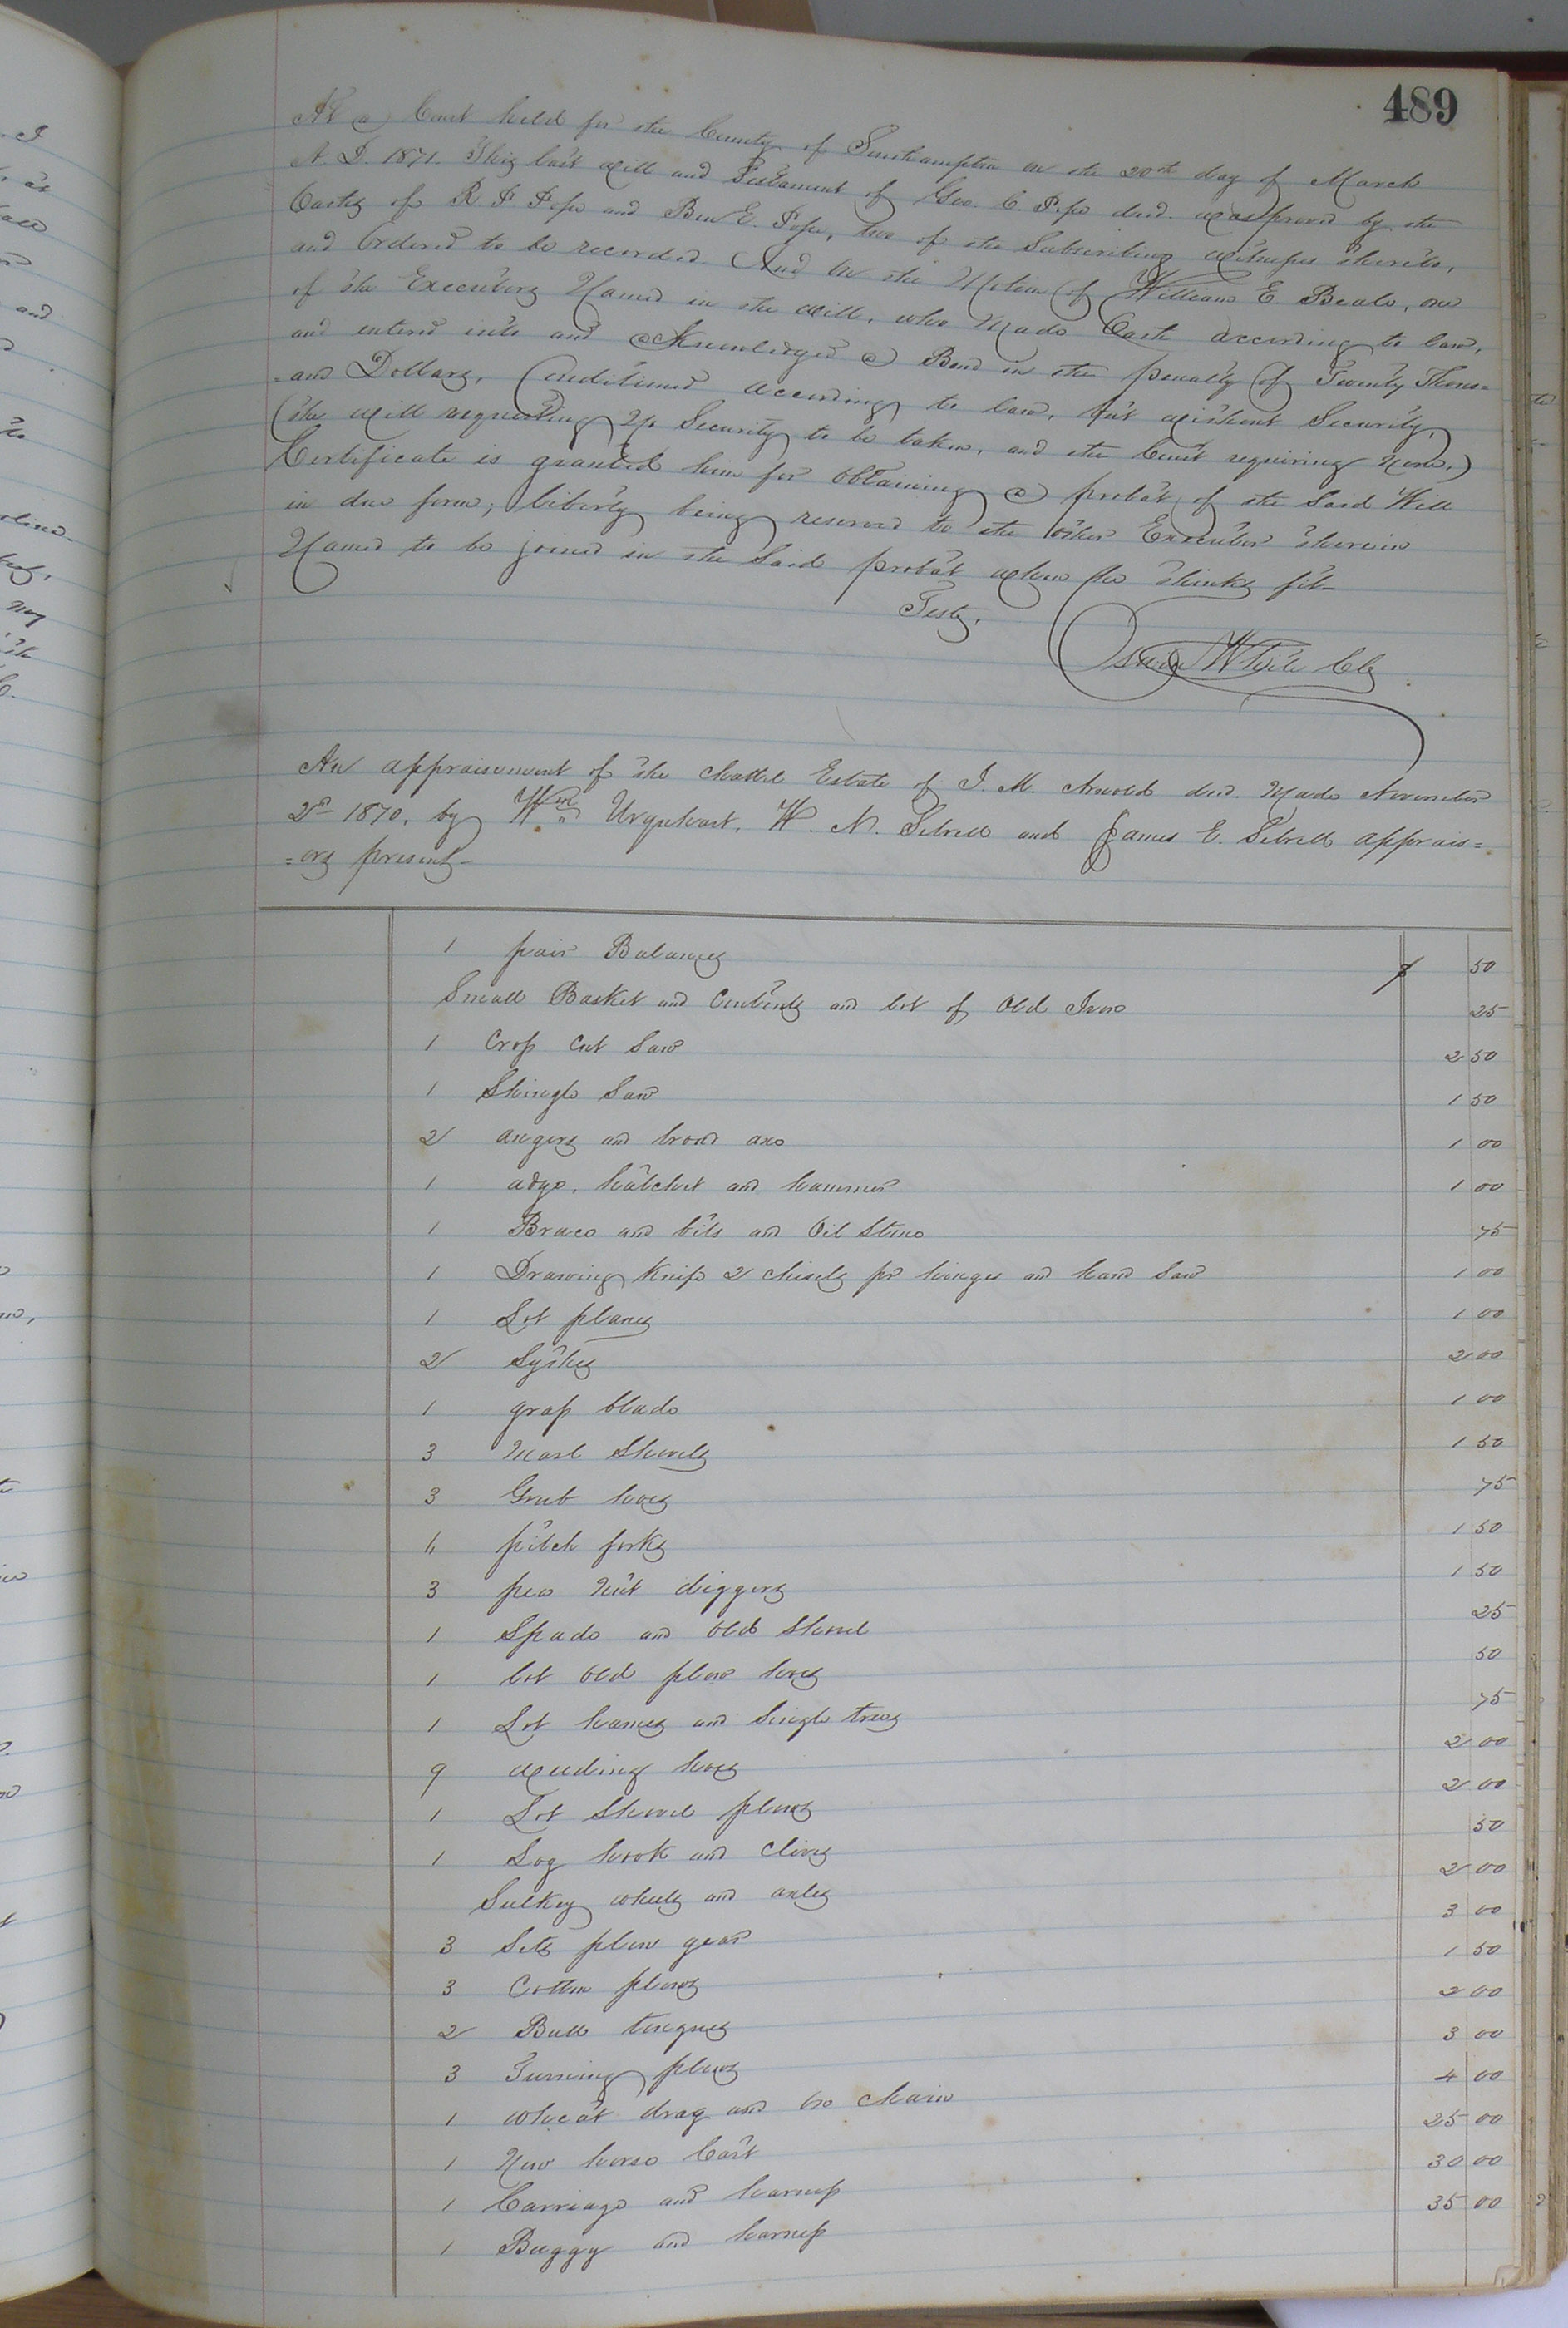 489
At a Court held for the County of Southampton on the 20th day of March
A. D. 1871. This last Will and Testament of Geo. C. Pope decd. was proved by the
Oaths of R. F. Pope and Ben E. Pope, two of the Subscribing witnesses thereto,
and Ordered to be recorded. And on the Motion of William E. Beale, one
of the Executors Named in the Will, who made Oath according to law,
and entered into and acknowledged a Bond in the penalty of Twenty Thous=
=and Dollars, Conditioned according to law, but without Security,
(the Will requesting No Security to be taken, and the Court requiring None,)
Certificate is granted him for obtaining a probat of the Said Will
in due form; liberty being reserved to the other Executor therein
Named to be joined in the Said probat when he thinks fit—
Teste,
White Clk
An appraisement of the chattel Estate of J. M. Arnold decd. Made November
2d 1870, by Wm Urquhart, W. N. Sebrell and James E. Sebrell apprais=
=ors present—
1 pair Balances $ 50
Small Basket and Contents and lot of Old Iron 25
1 Cross Cut Saw 2 50
1 Shingle Saw 1 50
2 augers and broad axe 1 00
1 adze, hatchet and hammer 1 00
1 Brace and bits and Oil Stone 75
1 Drawing Knife 2 chisels pr hinges and hand Saw 1 00
1 Lot planes 1 00
2 Sythes 2 00
1 grass blade 1 00
3 Marl Shovels 1 50
3 Grub hoes 75
4 pitch forks 1 50
3 pea Nut diggers 1 50
1 Spade and Old Shovel 25
1 lot Old plow hoes 50
1 Lot hames and Single trees 75
9 weeding hoes 2 00
1 Lot Shovel plows 2 00
1 Log hook and Clives 50
Sulkey wheels and axles 2 00
3 Sets plow gear 3 00
3 Cotton plows 1 50
2 Bull tongues 2 00
3 Turning plows 3 00
1 wheat drag and ox chain 4 00
1 New horse Cart 25 00
1 Carriage and harness 30 00
1 Buggy and harness 35 00